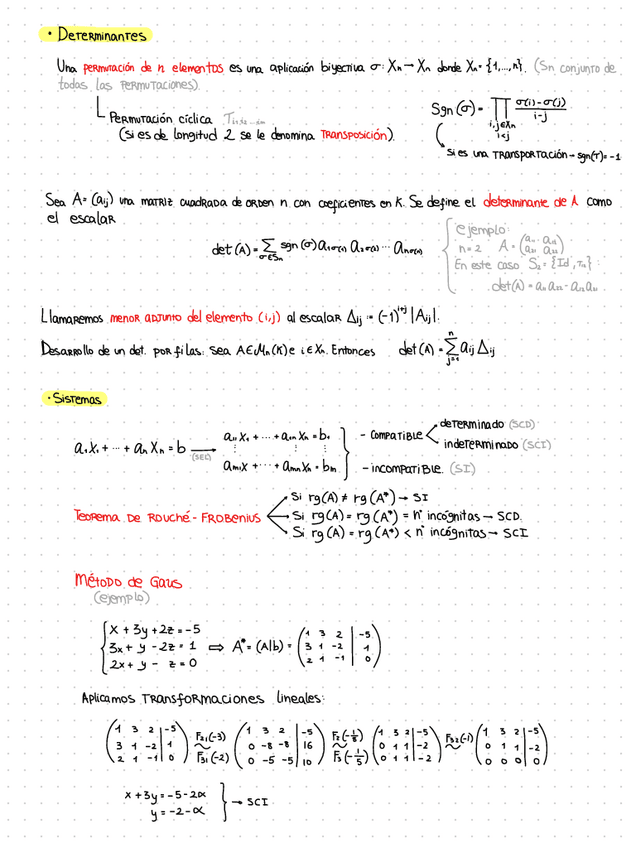 · Determinantes
Una permutación de n elementos es una aplicación biyectiva σ: Xn → Xn donde Xn = {1,...,n}. (Sn conjunto de
todas las permutaciones).
Permutación cíclica
(si es de longitud 2 se le denomina transposición).
Sgn(σ) = ∏ i,j∈Xn i<j (σ(i)-σ(j))/(i-j)
si es una transportación → sgn(τ) = -1
Sea A = (aij) una matriz cuadrada de orden n con coeficientes en K. Se define el determinante de A como
el escalar
det(A) = Σ σ∈Sn sgn(σ) a1σ(1) a2σ(2) ··· anσ(n)
ejemplo:
n=2 A = (a11 a12
a21 a22)
En este caso S2 = {Id, τ12}:
det(A) = a11 a22 - a12 a21
Llamaremos menor adjunto del elemento (i,j) al escalar Δij := (-1)^(i+j) |Aij|.
Desarrollo de un det. por filas: Sea A∈Mn(K) e i∈Xn. Entonces det(A) = Σ j=1 n aij Δij
· Sistemas
a1X1 + ··· + anXn = b → (SEL)
a11X1 + ··· + a1nXn = b1
⋮ ⋮ ⋮
am1X + ··· + amnXn = bm
- compatible
determinado (SCD)
indeterminado (SCI)
- incompatible. (SI)
Teorema de Rouché - Frobenius
Si rg(A) ≠ rg(A*) → SI
Si rg(A) = rg(A*) = n° incógnitas → SCD.
Si rg(A) = rg(A*) < n° incógnitas → SCI
Método de Gaus
(ejemplo)
x + 3y + 2z = -5
3x + y - 2z = 1 ⟹ A* = (A|b) =
2x + y - z = 0
1 3 2 | -5
3 1 -2 | 1
2 1 -1 | 0
Aplicamos transformaciones lineales:
1 3 2 | -5
3 1 -2 | 1
2 1 -1 | 0
F21(-3)
~
F31(-2)
1 3 2 | -5
0 -8 -8 | 16
0 -5 -5 | 10
F2(-1/8)
~
F3(-1/5)
1 3 2 | -5
0 1 1 | -2
0 1 1 | -2
F32(-1)
~
1 3 2 | -5
0 1 1 | -2
0 0 0 | 0
x + 3y = -5 - 2α
y = -2 - α
→ SCI